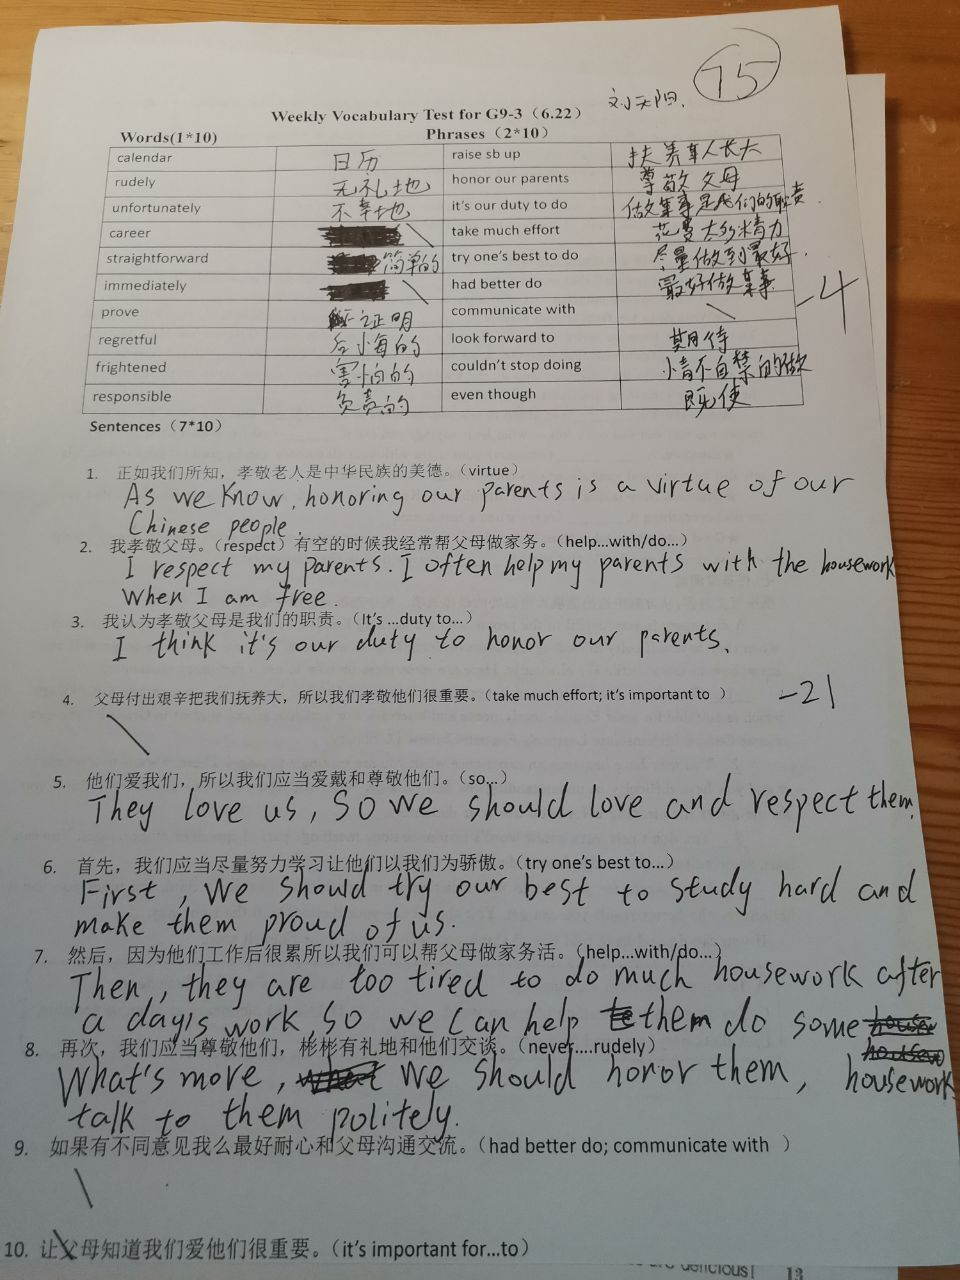 75
刘天阳.
Weekly Vocabulary Test for G9-3（6.22）
Words(1*10) Phrases（2*10）
calendar 日历 raise sb up 扶养某人长大
rudely 无礼地 honor our parents 尊敬父母
unfortunately 不幸地 it's our duty to do 做某事是我们的职责
career take much effort 花费大多精力
straightforward 简单的 try one's best to do 尽量做到最好.
immediately had better do 最好做某事
prove 证明 communicate with -4
regretful 后悔的 look forward to 期待
frightened 害怕的 couldn't stop doing 情不自禁的做
responsible 负责的 even though 既使
Sentences（7*10）
1. 正如我们所知，孝敬老人是中华民族的美德。（virtue）
As we know, honoring our parents is a virtue of our
Chinese people.
2. 我孝敬父母。（respect）有空的时候我经常帮父母做家务。（help...with/do...）
I respect my parents. I often help my parents with the housework
when I am free.
3. 我认为孝敬父母是我们的职责。（It's ...duty to...）
I think it's our duty to honor our parents.
4. 父母付出艰辛把我们抚养大，所以我们孝敬他们很重要。（take much effort; it's important to ） -21
5. 他们爱我们，所以我们应当爱戴和尊敬他们。（so...）
They love us, so we should love and respect them.
6. 首先，我们应当尽量努力学习让他们以我们为骄傲。（try one's best to...）
First, we should try our best to study hard and
make them proud of us.
7. 然后，因为他们工作后很累所以我们可以帮父母做家务活。（help...with/do...）
Then, they are too tired to do much housework after
a day's work, so we can help them do some
8. 再次，我们应当尊敬他们，彬彬有礼地和他们交谈。（never....rudely）
housework
What's more, we should honor them,
talk to them politely.
9. 如果有不同意见我么最好耐心和父母沟通交流。（had better do; communicate with ）
10. 让父母知道我们爱他们很重要。（it's important for...to）
are delicious!
13